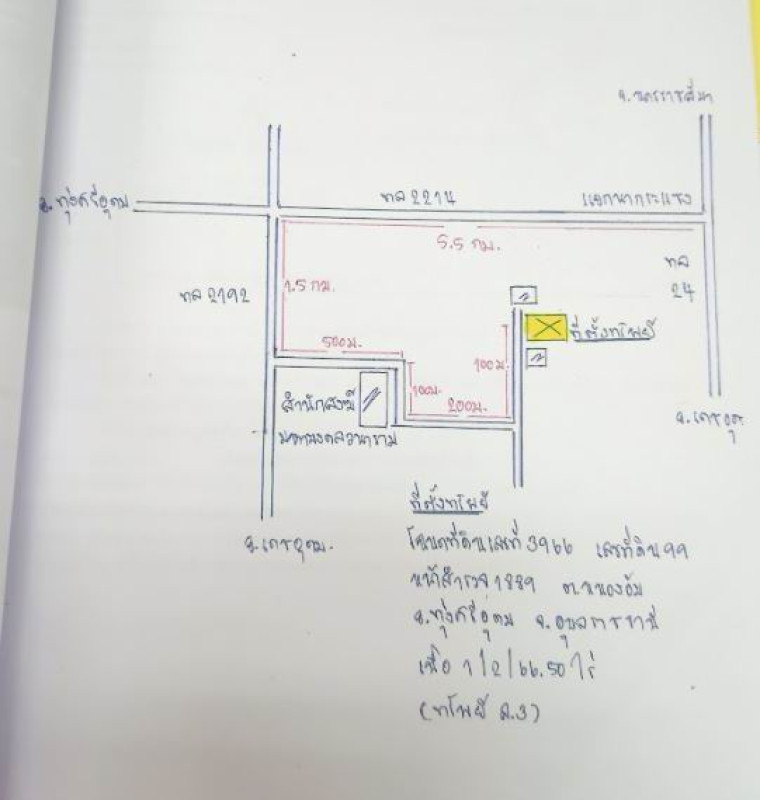 จ.นครราชสีมา
ทล 2214
แยกนากระแซง
อ.ทุ่งศรีอุดม
5.5 กม.
ทล
24
1.5 กม.
ทล 2192
ที่ตั้งทรัพย์
500ม.
100ม.
100ม.
200ม.
สำนักสงฆ์
อ.เดชอุดม.
ที่ตั้งทรัพย์
โฉนดที่ดินเลขที่ 3966 เลขที่ดิน 99
หน้าสำรวจ 1889 ต.หนองอ้ม
อ.ทุ่งศรีอุดม จ.อุบลราชธานี
เนื้อ 1/2/66.50 ไร่
(ทรัพย์ ล.3)